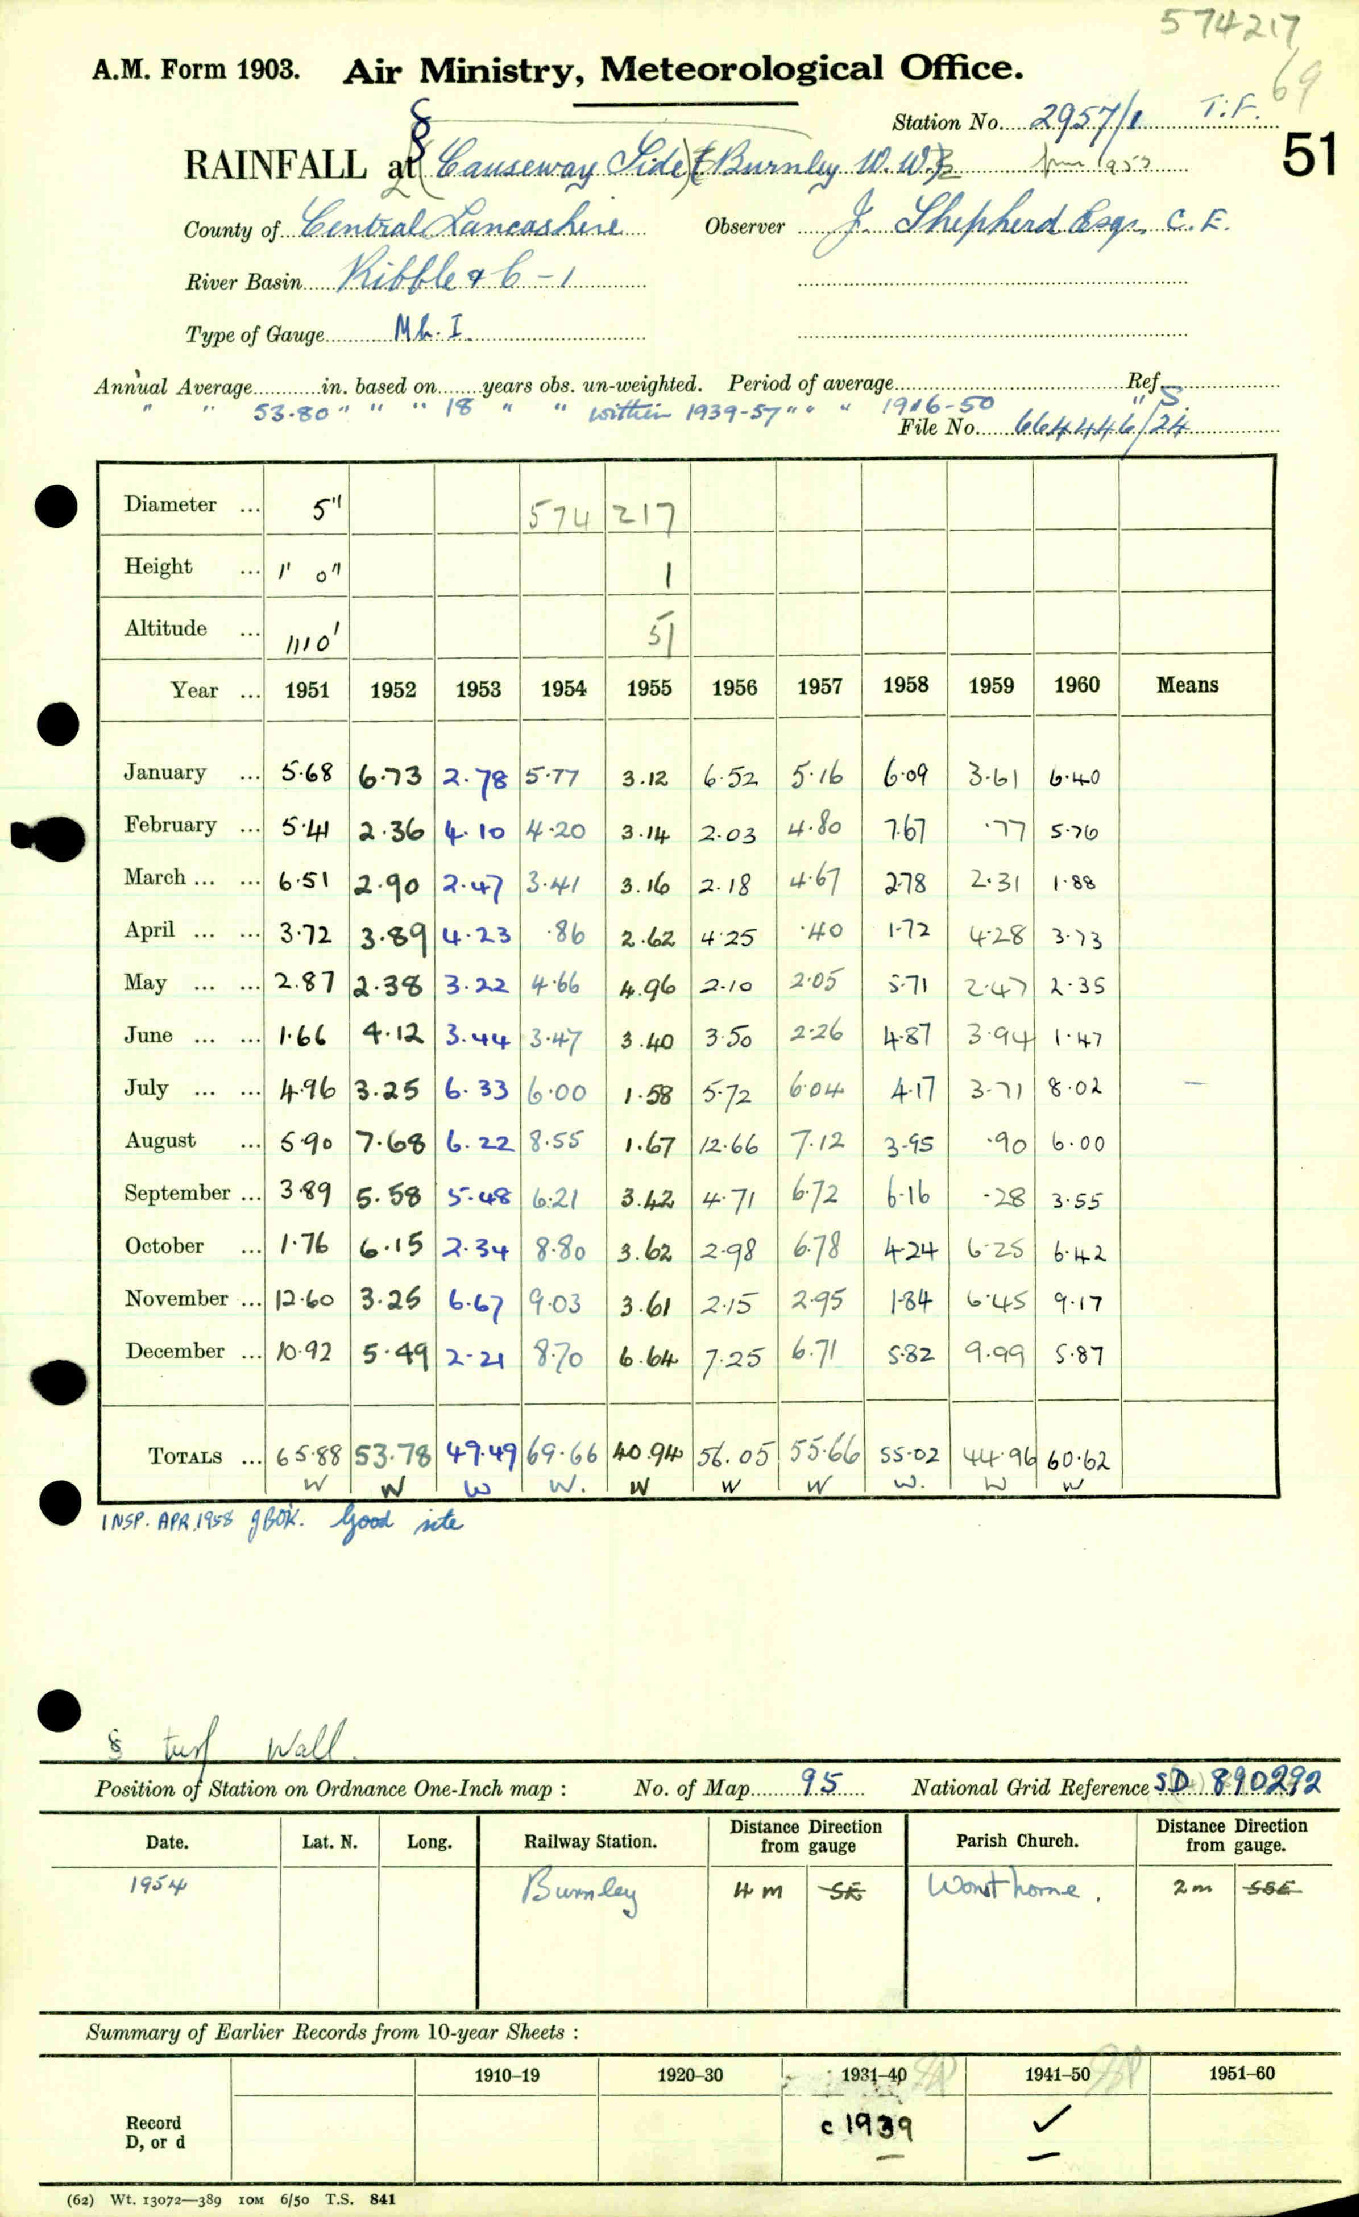 574217
69
A.M. Form 1903. Air Ministry, Meteorological Office.
Station No. 2957/1 T.F.
51
§
RAINFALL at § (Causeway Side) (Burnley W.W.)
County of Central Lancashire Observer J. Shepherd Esqr. C.E.
River Basin Ribble & C-1
Type of Gauge
Annual Average in. based on years obs. un-weighted. Period of average Ref.
" " 53.80 " " " 18 " " within 1939-57 " " " 1916-50 " S.
File No. 664446/24
Diameter ... 5" 574 217
Height ... 1' 0" 1
Altitude ... 1110' 51
Year ... 1951 1952 1953 1954 1955 1956 1957 1958 1959 1960 Means
January ... 5.68 6.73 2.78 5.77 3.12 6.52 5.16 6.09 3.61 6.40
February ... 5.41 2.36 4.10 4.20 3.14 2.03 4.80 7.67 .77 5.76
March ... ... 6.51 2.90 2.47 3.41 3.16 2.18 4.67 2.78 2.31 1.88
April ... ... 3.72 3.89 4.23 .86 2.62 4.25 .40 1.72 4.28 3.73
May ... ... 2.87 2.38 3.22 4.66 4.96 2.10 2.05 5.71 2.47 2.35
June ... ... 1.66 4.12 3.44 3.47 3.40 3.50 2.26 4.87 3.94 1.47
July ... ... 4.96 3.25 6.33 6.00 1.58 5.72 6.04 4.17 3.71 8.02 —
August ... 5.90 7.68 6.22 8.55 1.67 12.66 7.12 3.95 .90 6.00
September ... 3.89 5.58 5.48 6.21 3.42 4.71 6.72 6.16 .28 3.55
October ... 1.76 6.15 2.34 8.80 3.62 2.98 6.78 4.24 6.25 6.42
November ... 12.60 3.25 6.67 9.03 3.61 2.15 2.95 1.84 6.45 9.17
December ... 10.92 5.49 2.21 8.70 6.64 7.25 6.71 5.82 9.99 5.87
TOTALS ... 65.88 53.78 49.49 69.66 40.94 56.05 55.66 55.02 44.96 60.62
W W W W. W W W W. W W
INSP. APR. 1958 Good site
§ turf Wall.
Position of Station on Ordnance One-Inch map : No. of Map 95 National Grid Reference SD 890292
Date. Lat. N. Long. Railway Station. Distance Direction from gauge Parish Church. Distance Direction from gauge.
1954 Burnley 4 m SE Worsthorne. 2 m SSE
Summary of Earlier Records from 10-year Sheets :
1910–19 1920–30 1931–40 1941–50 1951–60
Record D, or d c 1939 ✓
(62) Wt. 13072—389 10M 6/50 T.S. 841